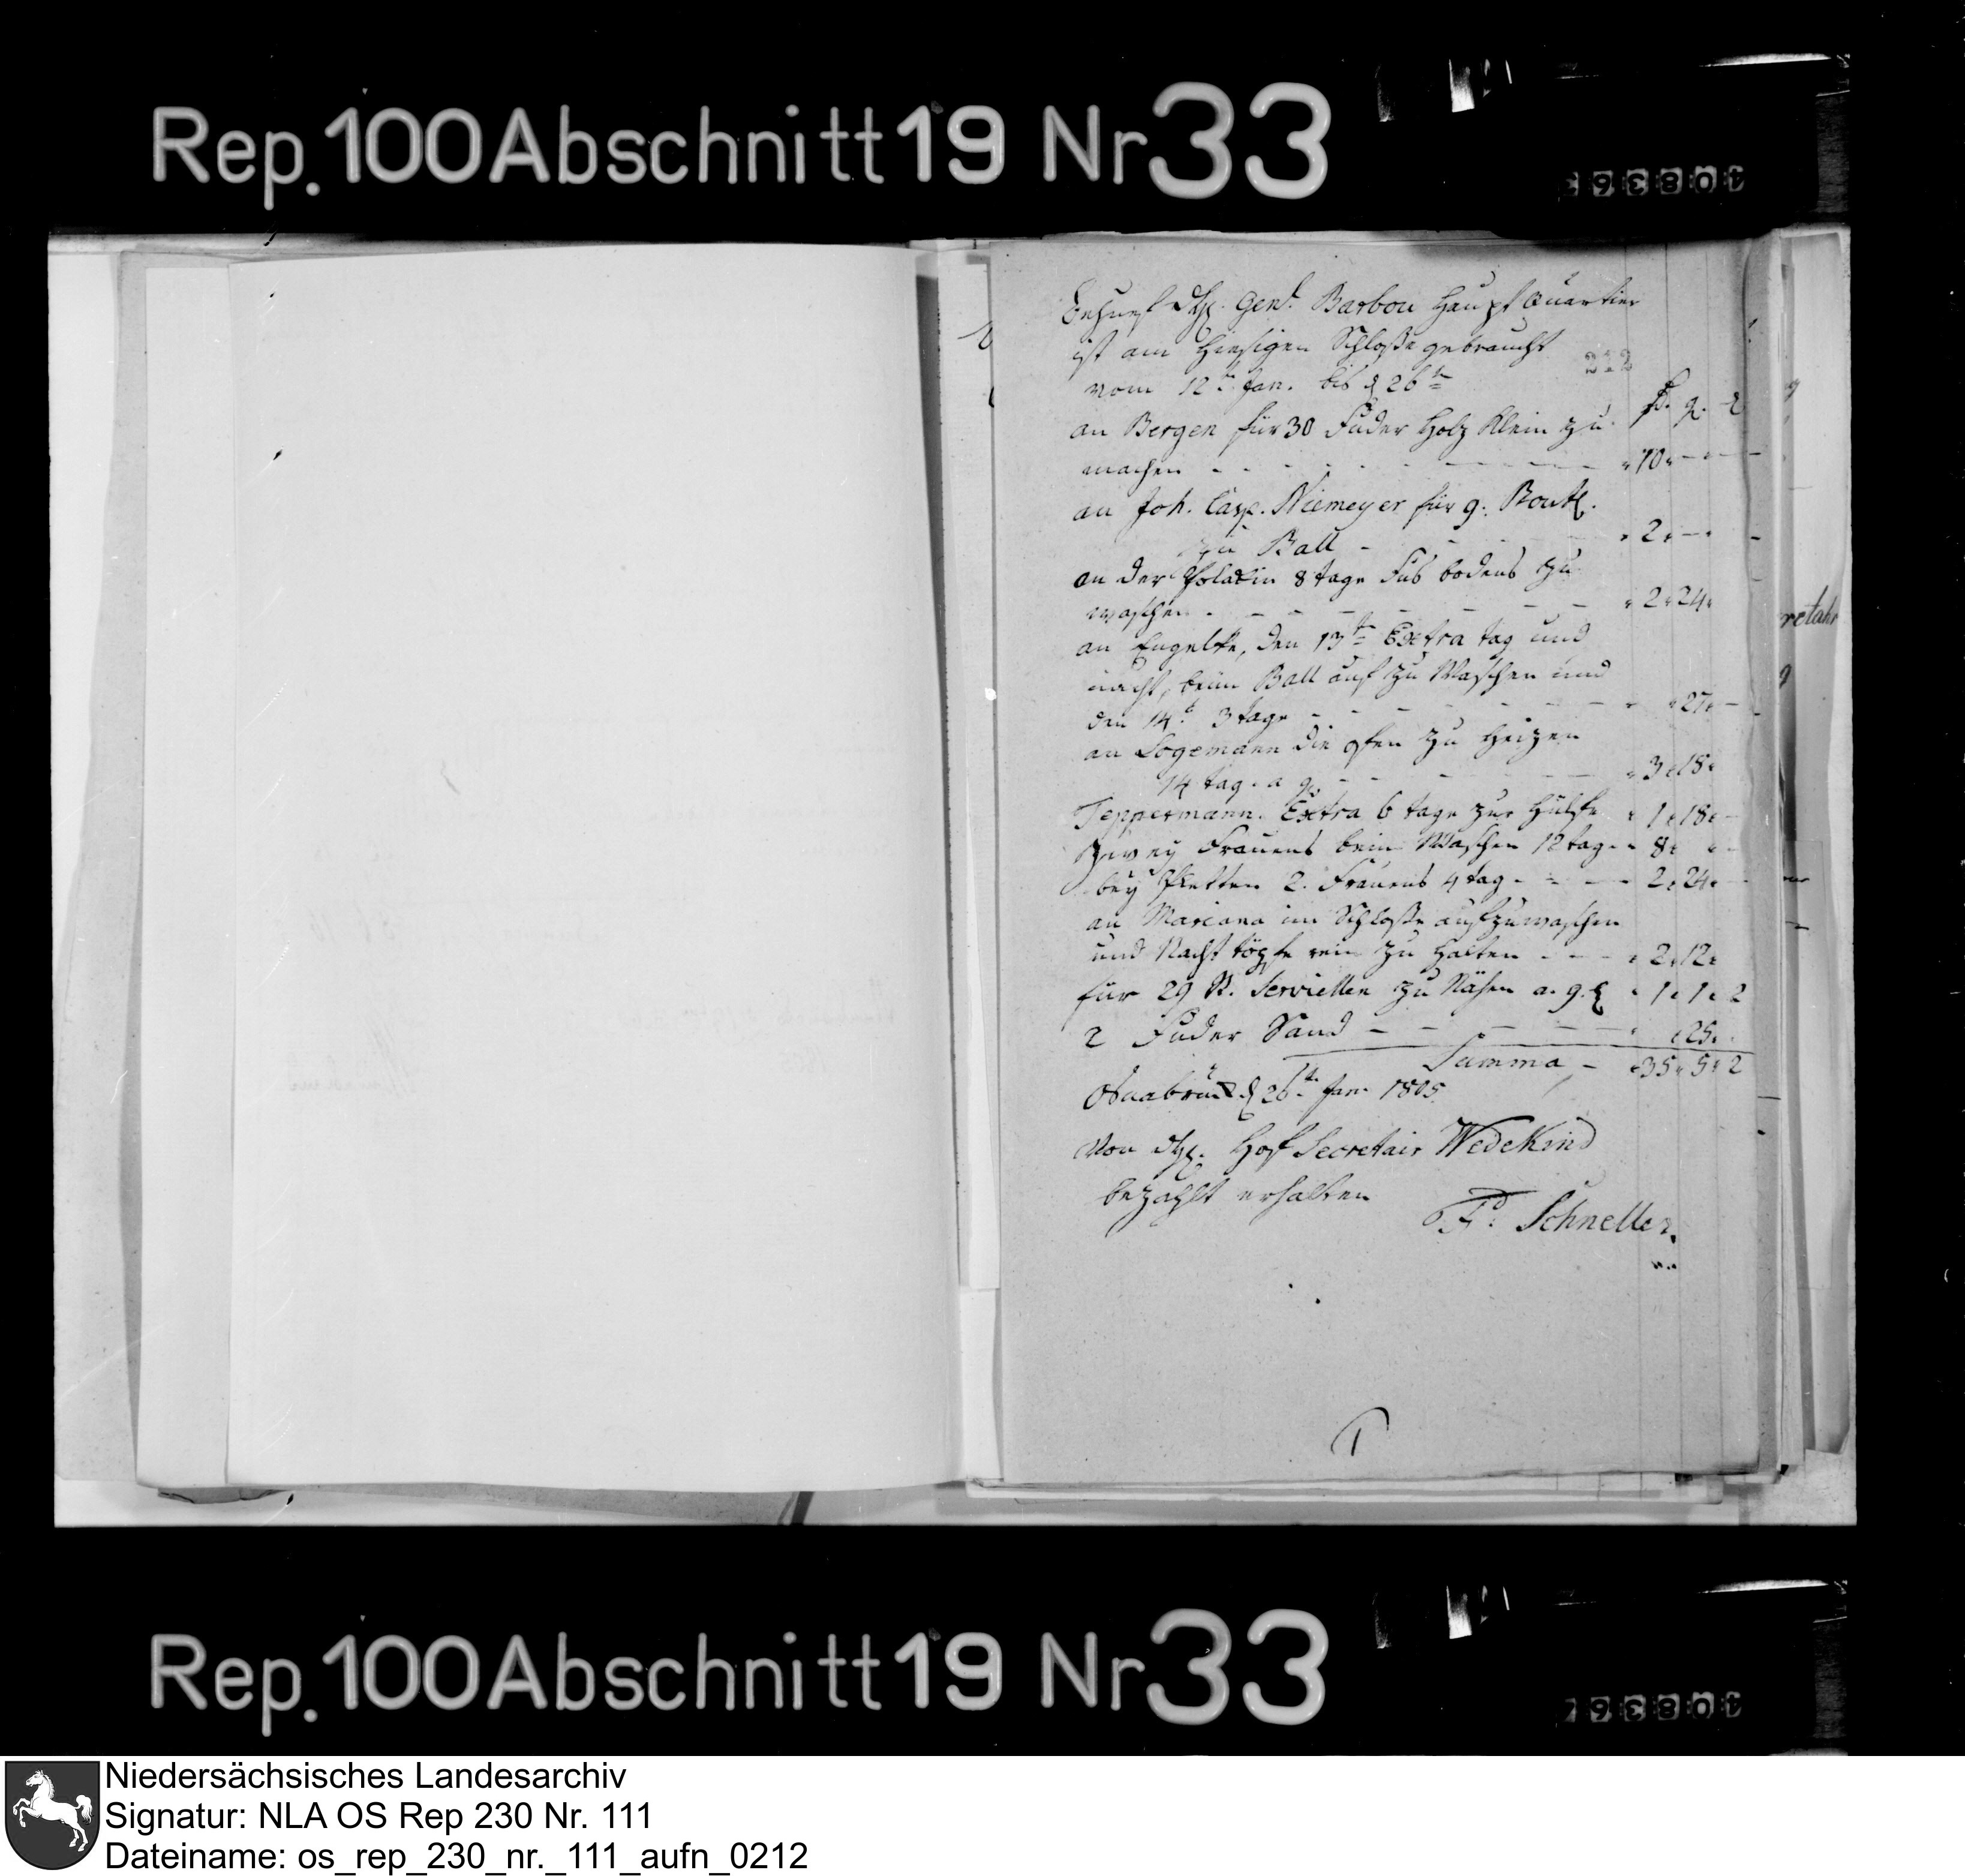 Rep. 100 Abschnitt 19 Nr 33
408363
Behuef H. Genl. Barbou Haupt Quartier
ist am hiesigen Schloße gebraucht
212
vom 12t. Jan. bis d 26t
an Bergen für 30 Fuder Holz klein zu
machen - - - 10 -
an Joh. Casp. Niemeyer für 9. Boutl.
zu Ball - 2 -
an der 8 tage Fus bodens zu
waschen - - - 2 24
an Engelke, den 13t Extra tag und
nacht, beim Ball auf zu Waschen und
den 14t 3 tage - - - 27 -
an Logemann die ofen zu heizen
14 tag. a 9 - - - 3 18
Teppermann. Extra 6 tage zur Hülfe 1 18 -
Zwey Frauens beim Waschen 12 tag - 8
bey Pletten 2. Frauens 4 tag - - - 2 24
an Mariana im Schloße aufzuwaschen
und Nacht töpfe rein zu halten - - - 2 12
für 29 St. Servietten zu Nähen a. 9 d 1 1 2
2 Fuder Sand - - - 25
Summa - 35 5 2
Osnabrück d 26t. Jan. 1805
Von H. Hof Secretair Wedekind
bezahlt erhalten
Fd. Schneller
retair
Rep. 100 Abschnitt 19 Nr 33
40836
Niedersächsisches Landesarchiv
Signatur: NLA OS Rep 230 Nr. 111
Dateiname: os_rep_230_nr._111_aufn_0212